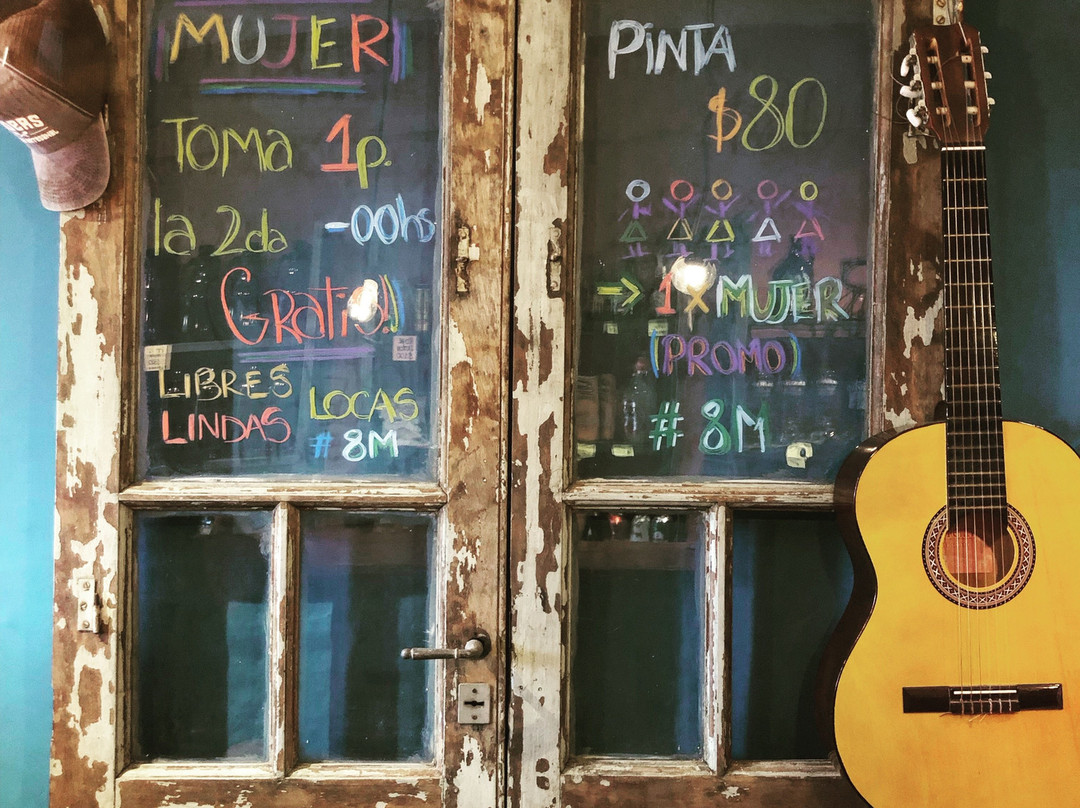 MUJER
TOMA 1p.
la 2da -00hs
GRATIS!!
LIBRES
LINDAS LOCAS
#8M
PINTA
$80
→ 1 x MUJER
(PROMO)
# 8M